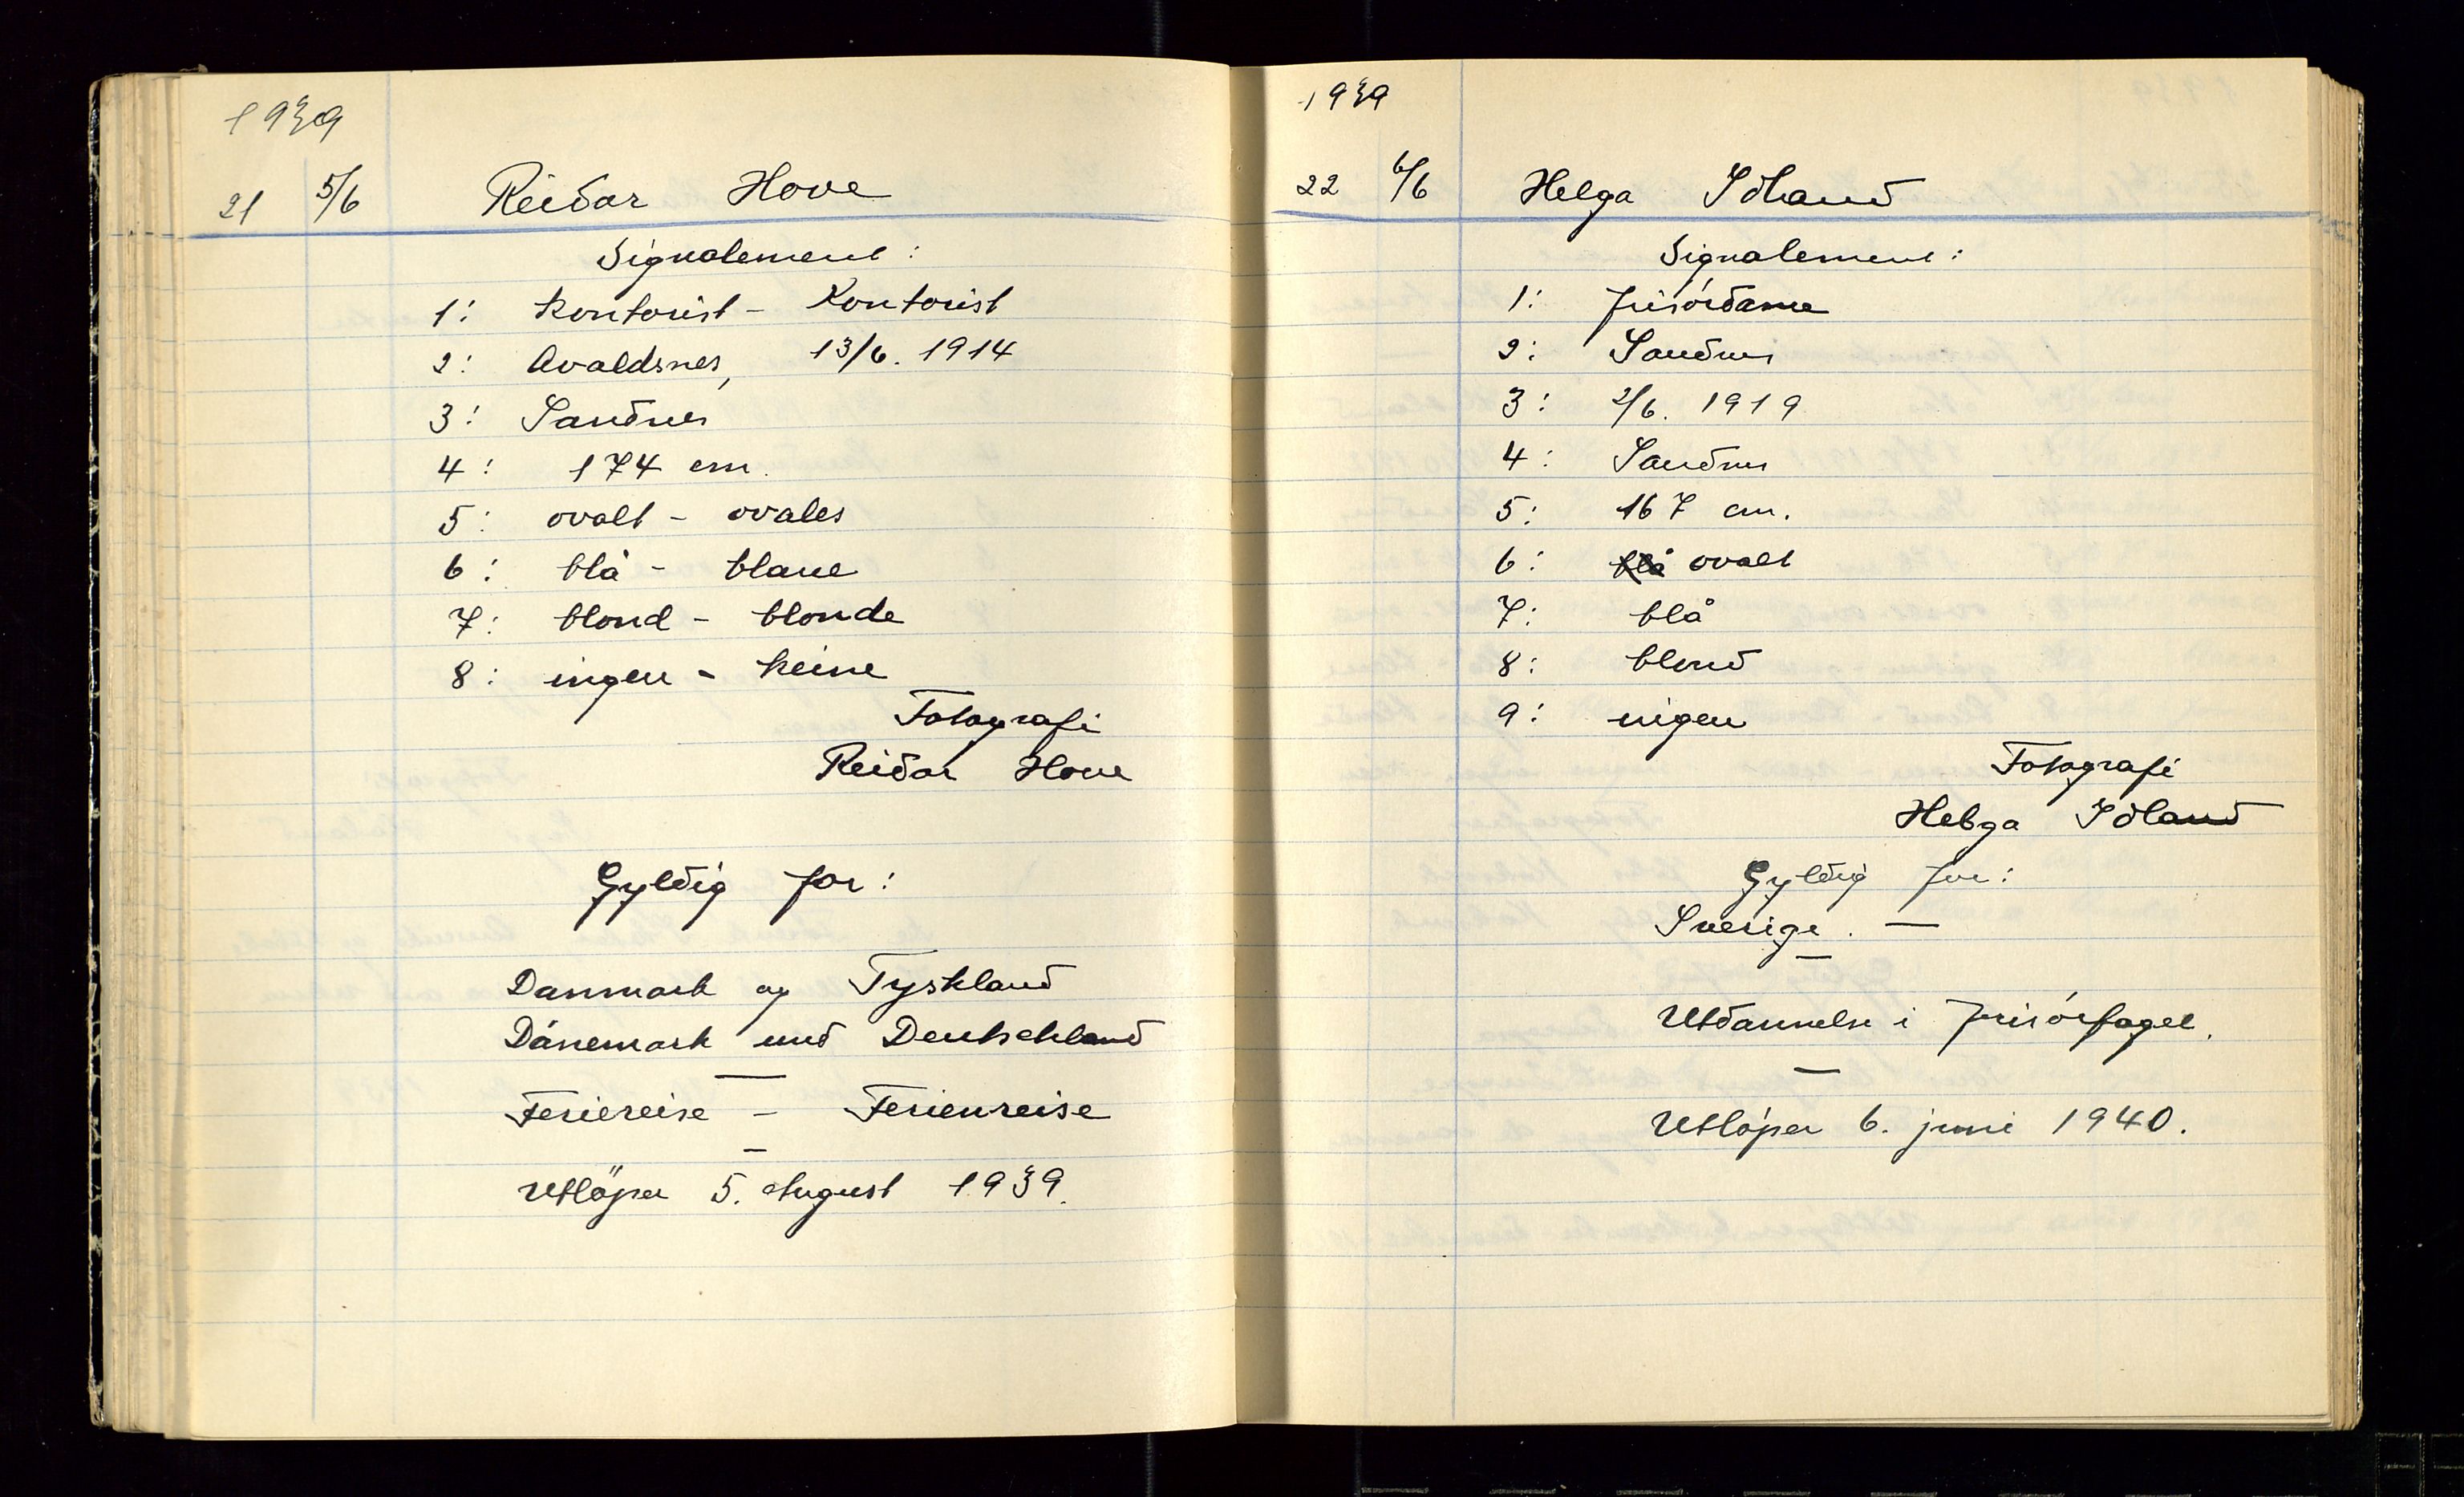 1939
21 5/6 Reidar Hove
Signalement:
1: Kontorist - Kontorist
2: Avaldsnes, 13/6. 1914
3: Sandnes
4: 174 cm.
5: ovalt - ovales
6: blå - blaue
7: blond - blonde
8: ingen - keine
Fotografi
Reidar Hove
Gyldig for:
Danmark og Tyskland
Dänemark und Deutschland
Feriereise - Ferienreise
Utlöper 5. August 1939.
1939
22 6/6 Helga Idland
Signalement:
1: frisördame
2: Sandnes
3: 2/6. 1919
4: Sandnes
5: 167 cm.
6: blå ovalt
7: blå
8: blond
9: ingen
Fotografi
Helga Idland
Gyldig for:
Sverige. —
Utdannelse i frisörfaget.
Utlöper 6. juni 1940.